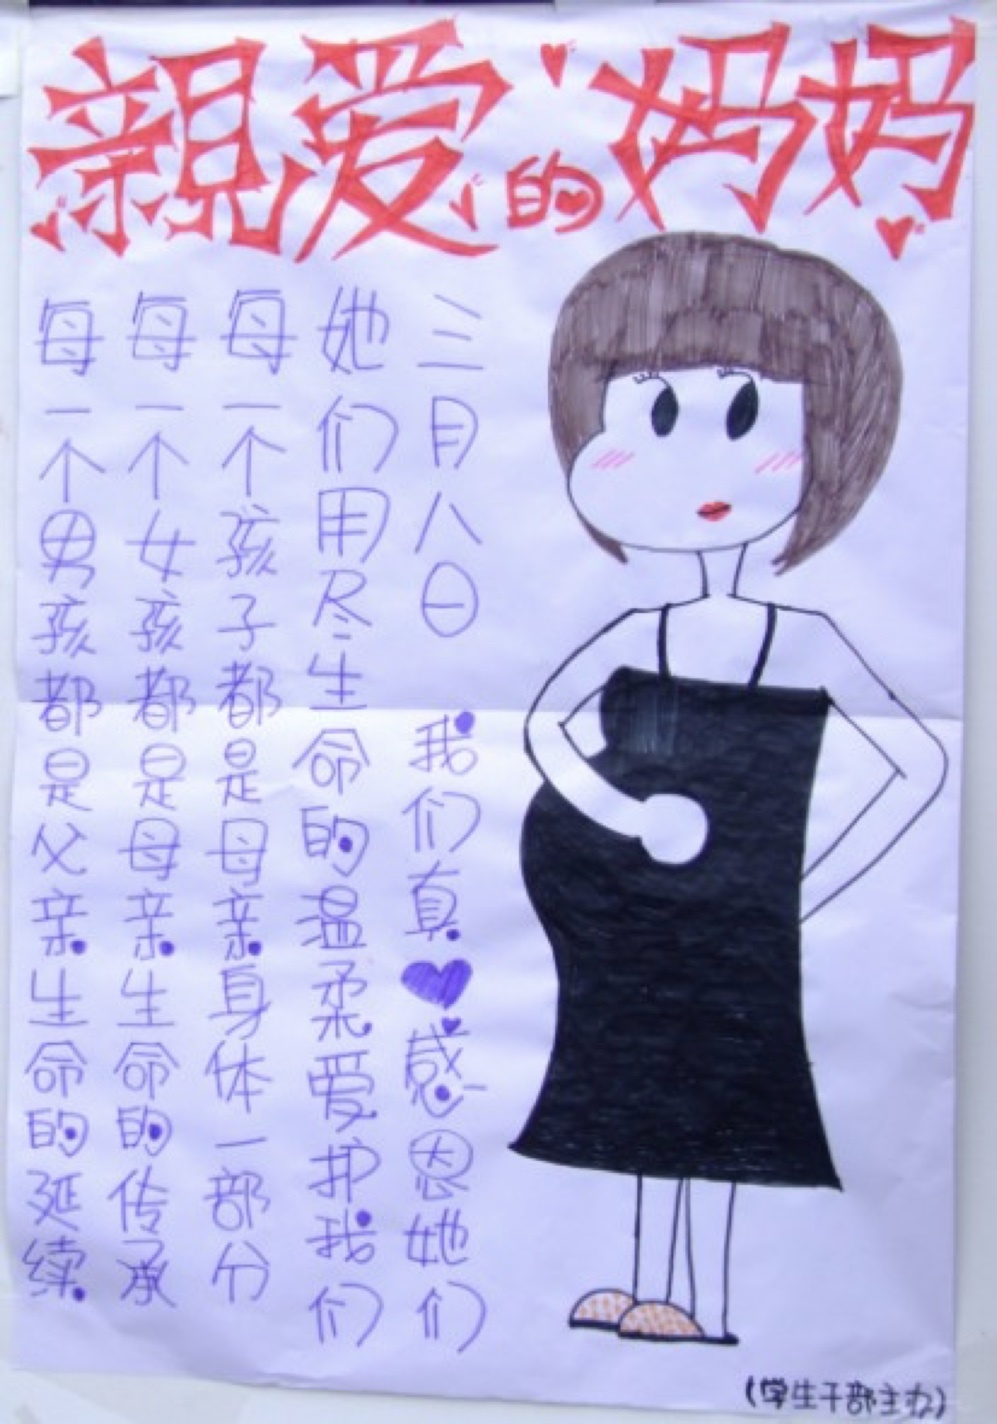 親爱的妈妈
每一个男孩都是父亲生命的延续
每一个女孩都是母亲生命的传承
每一个孩子都是母亲身体一部分
她们用尽生命的温柔爱护我们
三月八日 我们真♥感恩她们
(学生干部主办)